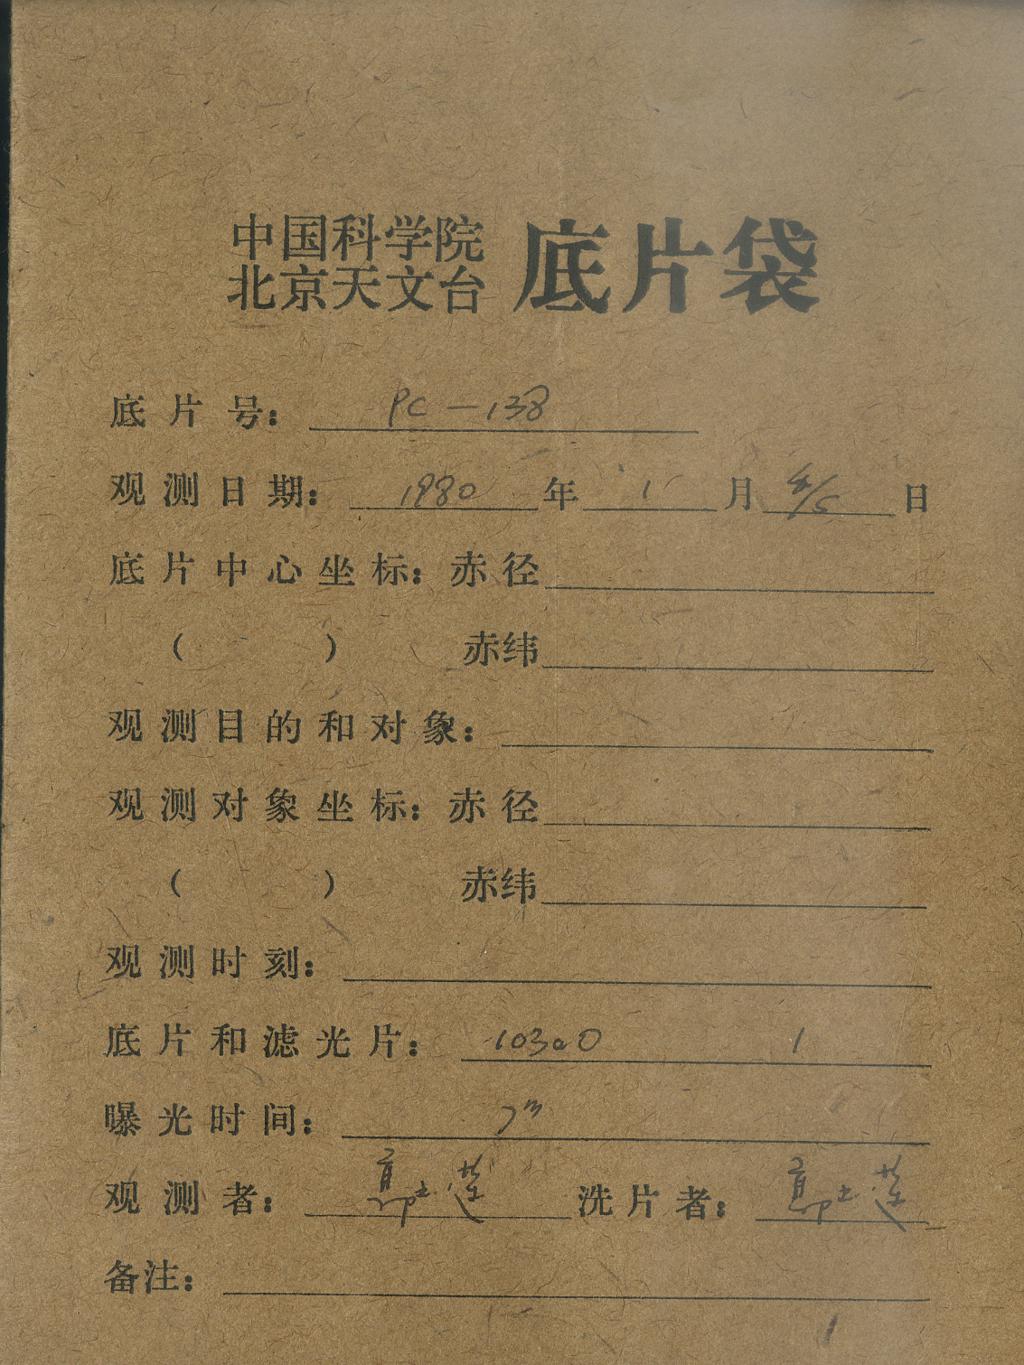 中国科学院
北京天文台 底片袋
底片号: PC-138
观测日期: 1980 年 1 月 4/5 日
底片中心坐标: 赤径
( ) 赤纬
观测目的和对象:
观测对象坐标: 赤径
( ) 赤纬
观测时刻:
底片和滤光片: 103aO 1
曝光时间: 7m
观测者: 洗片者:
备注:
1